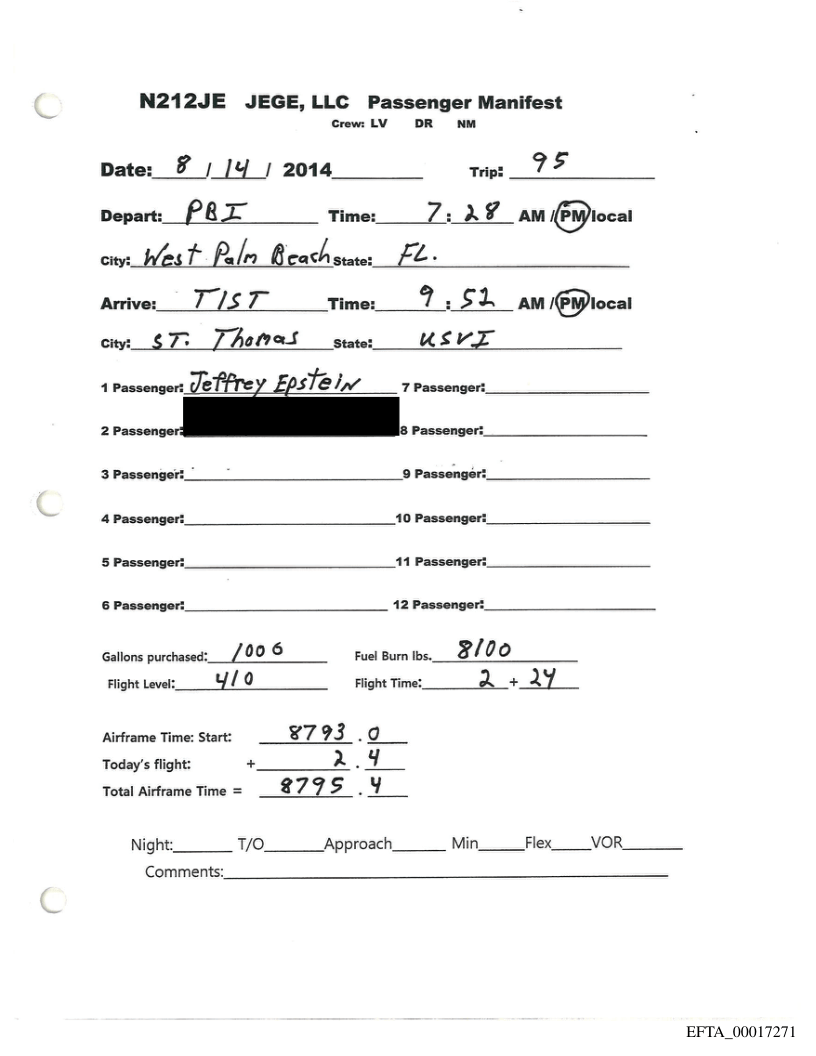 N212JE JEGE, LLC Passenger Manifest
Crew: LV DR NM
Date: 8 / 14 / 2014 Trip: 95
Depart: PBI Time: 7:28 AM / PM local
City: West Palm Beach State: FL.
Arrive: TIST Time: 9:52 AM / PM local
City: ST. Thomas State: USVI
1 Passenger: Jeffrey Epstein 7 Passenger:
2 Passenger: 8 Passenger:
3 Passenger: 9 Passenger:
4 Passenger: 10 Passenger:
5 Passenger: 11 Passenger:
6 Passenger: 12 Passenger:
Gallons purchased: 1006 Fuel Burn lbs. 8100
Flight Level: 410 Flight Time: 2 + 24
Airframe Time: Start: 8793.0
Today's flight: + 2.4
Total Airframe Time = 8795.4
Night: T/O Approach Min Flex VOR
Comments:
EFTA_00017271